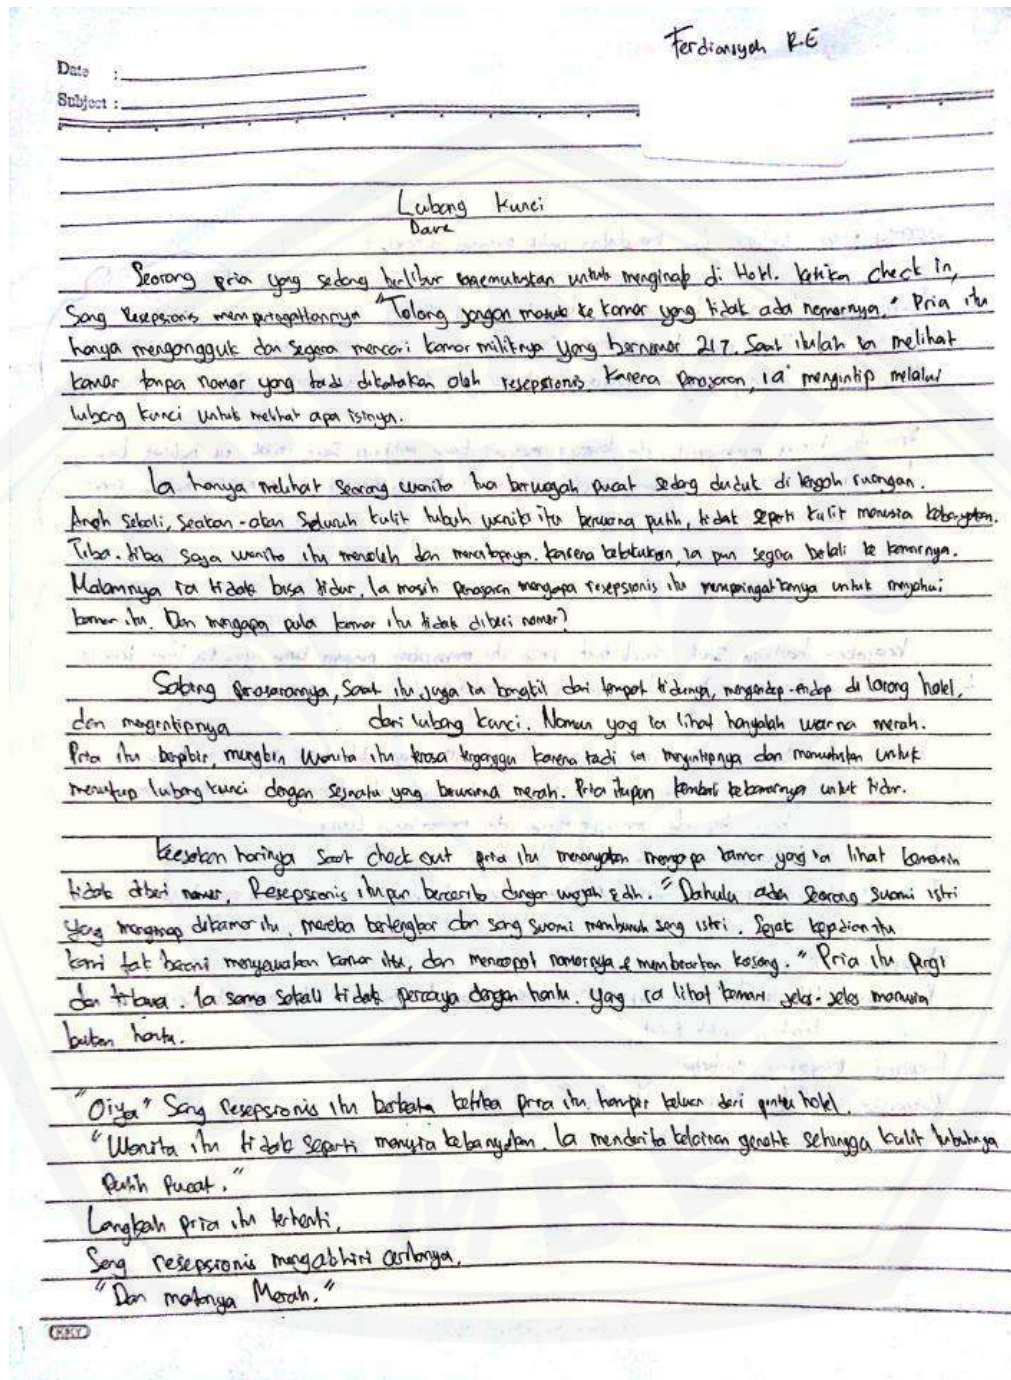 Ferdiansyah R.E
Date :
Subject :
Lubang Kunci
Dava
Seorang pria yang sedang berlibur memutuskan untuk menginap di Hotel. Ketika check in,
Sang Resepsionis memperingatkannya "Tolong jangan masuk ke kamar yang tidak ada nomornya." Pria itu
hanya mengangguk dan segera mencari kamar miliknya yang bernomor 217. Saat itulah ia melihat
kamar tanpa nomor yang tadi dikatakan oleh resepsionis Karena penasaran, ia mengintip melalui
lubang kunci untuk melihat apa isinya.
Ia hanya melihat seorang wanita tua berwajah pucat sedang duduk di tengah ruangan.
Aneh sekali, seakan-akan seluruh kulit tubuh wanita itu berwarna putih, tidak seperti kulit manusia kebanyakan.
Tiba-tiba saja wanita itu menoleh dan menatapnya. Karena ketakutan, ia pun segera belali ke kamarnya.
Malamnya ia tidak bisa tidur, Ia masih penasaran mengapa resepsionis itu memperingatkanya untuk menjahui
kamar itu. Dan mengapa pula kamar itu tidak diberi nomer?
Saking penasarannya, Saat itu juga ia bangkit dari tempat tidurnya, mengendap-endap di lorong hotel,
dan mengintipnya dari lubang kunci. Namun yang ia lihat hanyalah warna merah.
Pria itu berpikir, mungkin wanita itu terasa terganggu karena tadi ia mengintipnya dan memutuskan untuk
menutup lubang kunci dengan sesuatu yang berwarna merah. Pria itupun kembali kekamarnya untuk tidur.
Keesokan harinya saat check out pria itu menanyakan mengapa kamar yang ia lihat kemarin
tidak diberi nomer, Resepsionis itupun bercerita dengan wajah sedih. "Dahulu ada seorang suami istri
yang menginap dikamar itu, mereka bertengkar dan sang suami membunuh sang istri. Sejak kejadian itu
kami tak berani menyewakan kamar itu, dan mencopot nomornya & membiarkan kosong." Pria itu pergi
dan tertawa. Ia sama sekali tidak percaya dengan hantu. yang ia lihat kemari jelas-jelas manusia
bukan hantu.
"Oiya" Sang resepsionis itu berkata ketika pria itu hampir keluar dari pintu hotel.
"Wanita itu tidak seperti manusia kebanyakan. Ia menderita kelainan genetik sehingga kulit tubuhnya
putih pucat."
Langkah pria itu terhenti,
Sang resepsionis mengakhiri ceritanya,
"Dan matanya Merah."
KKY